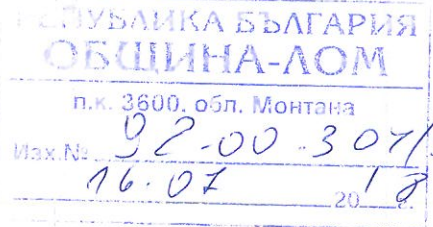 РЕПУБЛИКА БЪЛГАРИЯ
ОБЩИНА-ЛОМ
п.к. 3600. обл. Монтана
Изх.№ 92-00-301/
16.07 2018 г.